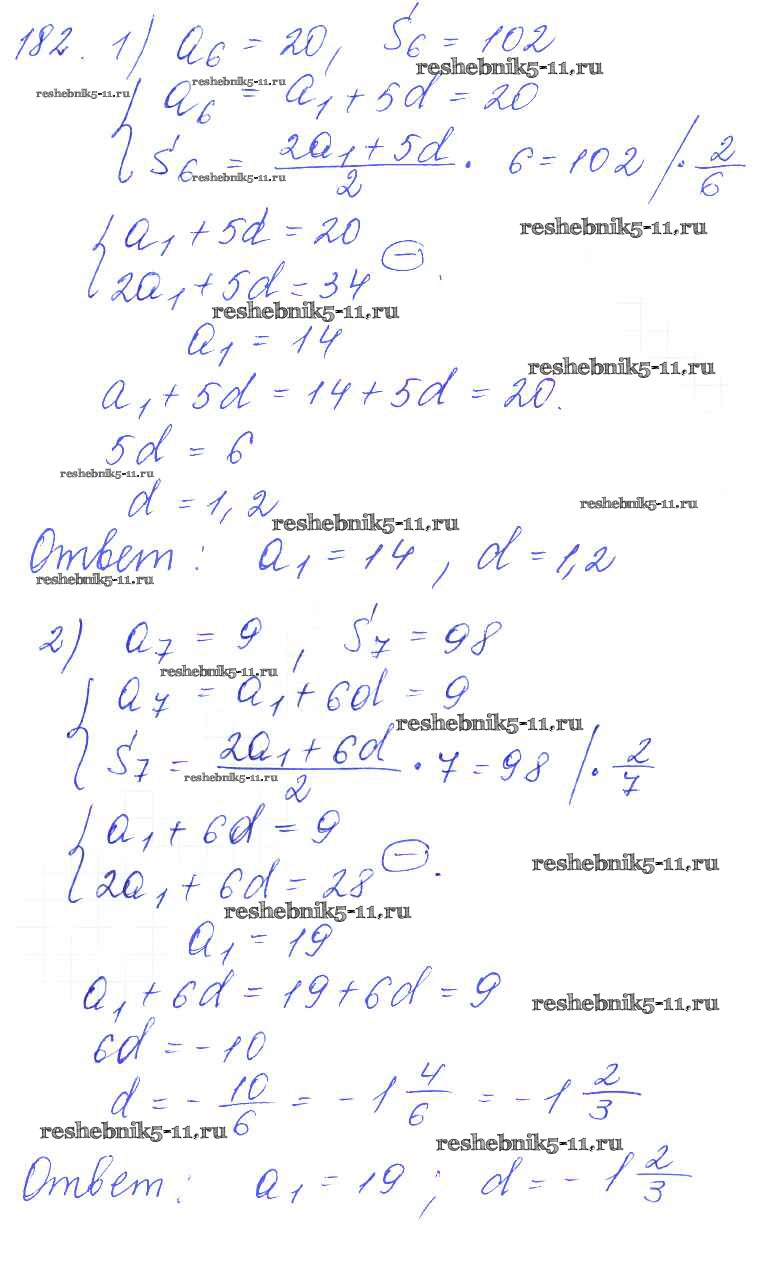 182. 1) a₆ = 20, S₆ = 102
reshebnik5-11.ru
reshebnik5-11.ru reshebnik5-11.ru
{ a₆ = a₁ + 5d = 20
S₆ = (2a₁ + 5d)/2 · 6 = 102 / · 2/6
reshebnik5-11.ru
{ a₁ + 5d = 20
reshebnik5-11.ru
2a₁ + 5d = 34 (−).
reshebnik5-11.ru
a₁ = 14
reshebnik5-11.ru
a₁ + 5d = 14 + 5d = 20.
5d = 6
reshebnik5-11.ru
d = 1,2
reshebnik5-11.ru
reshebnik5-11.ru
Ответ: a₁ = 14, d = 1,2
reshebnik5-11.ru
2) a₇ = 9, S₇ = 98
reshebnik5-11.ru
{ a₇ = a₁ + 6d = 9
reshebnik5-11.ru
S₇ = (2a₁ + 6d)/2 · 7 = 98 / · 2/7
reshebnik5-11.ru
{ a₁ + 6d = 9
reshebnik5-11.ru
2a₁ + 6d = 28 (−).
reshebnik5-11.ru
a₁ = 19
a₁ + 6d = 19 + 6d = 9
reshebnik5-11.ru
6d = -10
d = - 10/6 = - 1 4/6 = - 1 2/3
reshebnik5-11.ru
reshebnik5-11.ru
Ответ: a₁ = 19; d = - 1 2/3